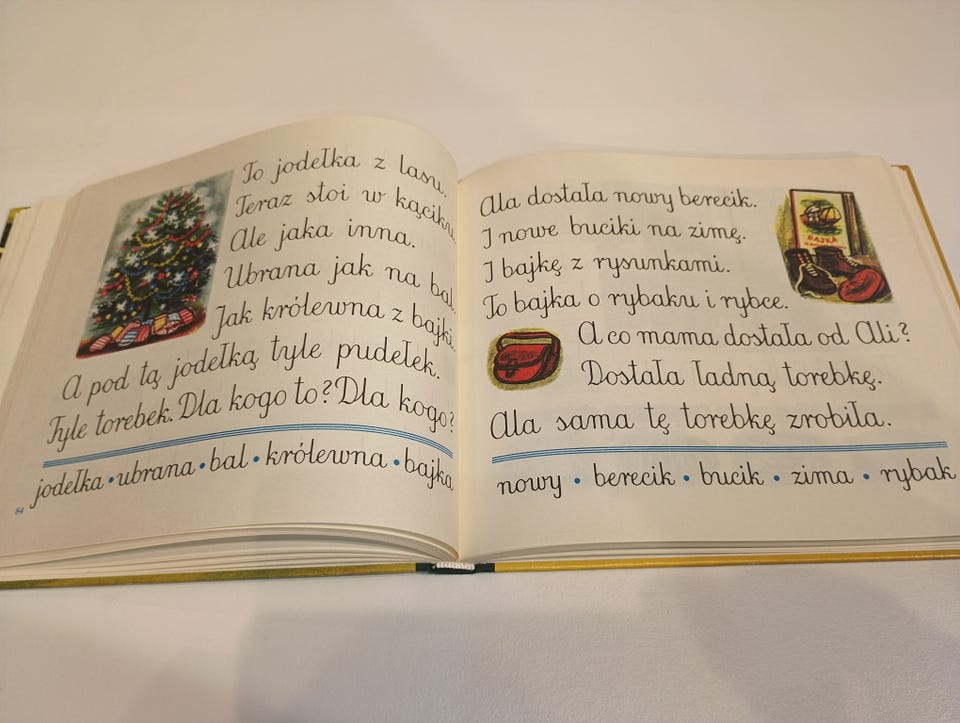 To jodełka z lasu.
Teraz stoi w kąciku.
Ale jaka inna.
Ubrana jak na bal.
Jak królewna z bajki.
A pod tą jodełką tyle pudełek.
Tyle torebek. Dla kogo to? Dla kogo?
jodełka • ubrana • bal • królewna • bajka
84
Ala dostała nowy berecik.
I nowe buciki na zimę.
I bajkę z rysunkami.
To bajka o rybaku i rybce.
BAJKA
A co mama dostała od Ali?
Dostała ładną torebkę.
Ala sama tę torebkę zrobiła.
nowy • berecik • bucik • zima • rybak